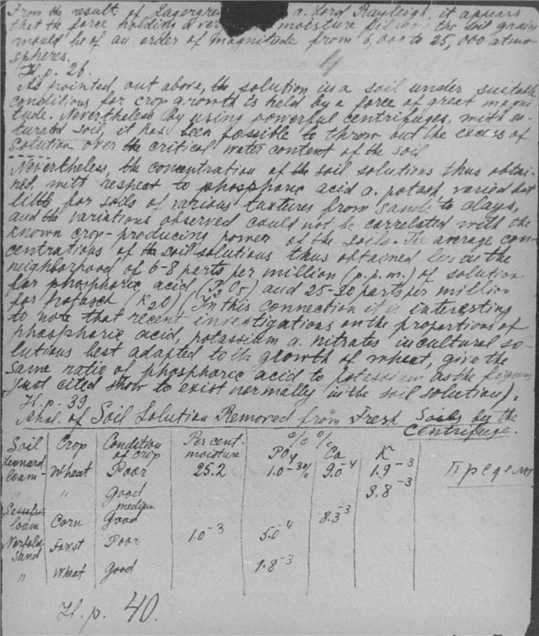 From the result of Lagergren a. Lord Rayleigh, it appears
that the force holding moisture film on the soil grains
would be of an order of magnitude from 6,000 to 25,000 atmo
spheres.
H. p. 26.
As pointed out above, the solution in a soil under suitable
conditions for crop growth is held by a force of great magni
tude. Nevertheless by using powerful centrifuges, with sa-
turated soil, it has been possible to throw out the excess of
solution over the critical water content of the soil
Nevertheless, the concentration of the soil solutions thus obtai-
ned, with respect to phosphoric acid a. potash varied but
little for soils of various textures from Sands to clays,
and the variations observed could not be correlated with the
known crop-producing power of the soils. The average con-
centrations of the soil solutions thus obtained lies in the
neighborhood of 6-8 parts per million (p.p.m.) of solution
for phosphoric acid (P2O5) and 25-30 parts per million
for potash (K2O) (In this connection it is interesting
to note that recent investigations on the proportions of
phosphoric acid, potassium a. nitrates in cultural so-
lutions best adapted to the growth of wheat, give the
same ratio of phosphoric acid to potassium as the figures
just cited show to exist normally in the soil solution).
H. p. 39
Anal. of Soil Solution Removed from Fresh Soils by the
Centrifuge.
Soil Crop Condition of crop Per cent. moisture % % PO4 Ca K
Leonard
loam Wheat Poor 25.2 9.0⁻⁴ 1.9⁻³
" " Good 3.8⁻³
medium
loam Corn Good 8.3⁻³
Norfolk
sand Forest Poor 1.0⁻³ 5.0⁻⁴
" Wheat Good 1.8⁻³
H. p. 40.